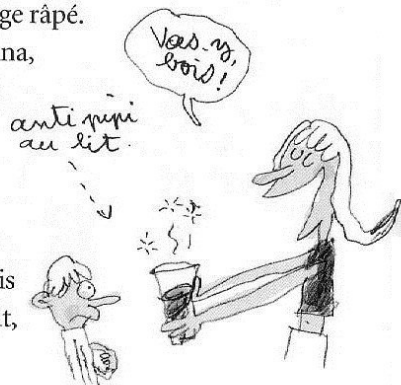 ge râpé.
na,
Vas-y,
bois!
anti pipi
au lit
is
t,